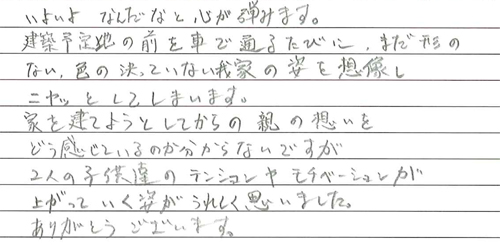 いよいよ なんだなと心が弾みます。
建築予定地の前を車で通るたびに、まだ形の
ない、色の決っていない我家の姿を想像し
ニヤッとしてしまいます。
家を建てようとしてからの親の想いを
どう感じているのか分からないですが
2人の子供達のテンションやモチベーションが
上がっていく姿がうれしく思いました。
ありがとうございます。